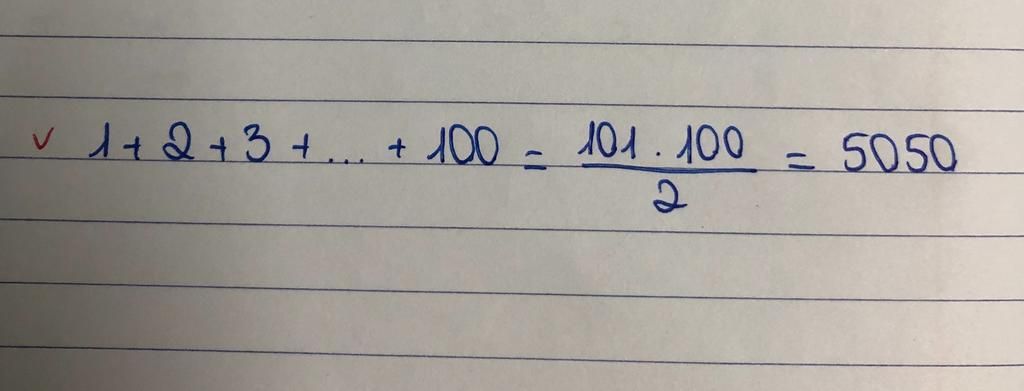 ✓ 1 + 2 + 3 + ... + 100 = \frac{101 . 100}{2} = 5050